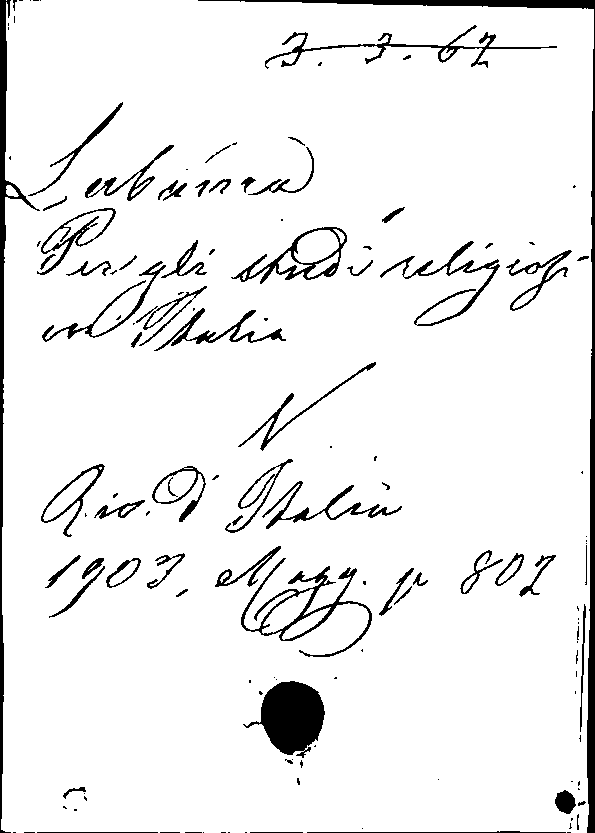 3. 3. 62
Labanca
Per gli studi religiosi
in Italia
N
Riv. d'Italia
1903, Magg. p 802